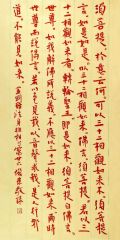 須菩提於意云何可以三十二相觀如來不
須菩提言如是如是以三十二相觀如來佛言須菩提若以三
十二相觀如來者轉輪聖王即是如來須菩提白佛言
世尊如我解佛所說義不應以三十二相觀如來爾時
世尊而說偈言若以色見我以音聲求我是人行邪
道不能見如來 金剛經法身非相分第廿六